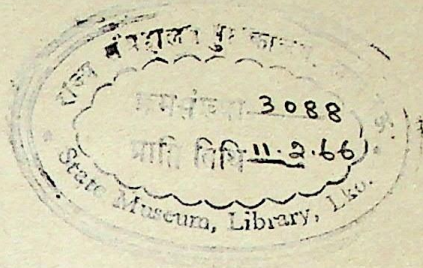 राज्य संग्रहालय पुस्तकालय
क्रमसंख्या 3088
प्राप्ति तिथि 11.2.66
State Museum, Library, Lko.